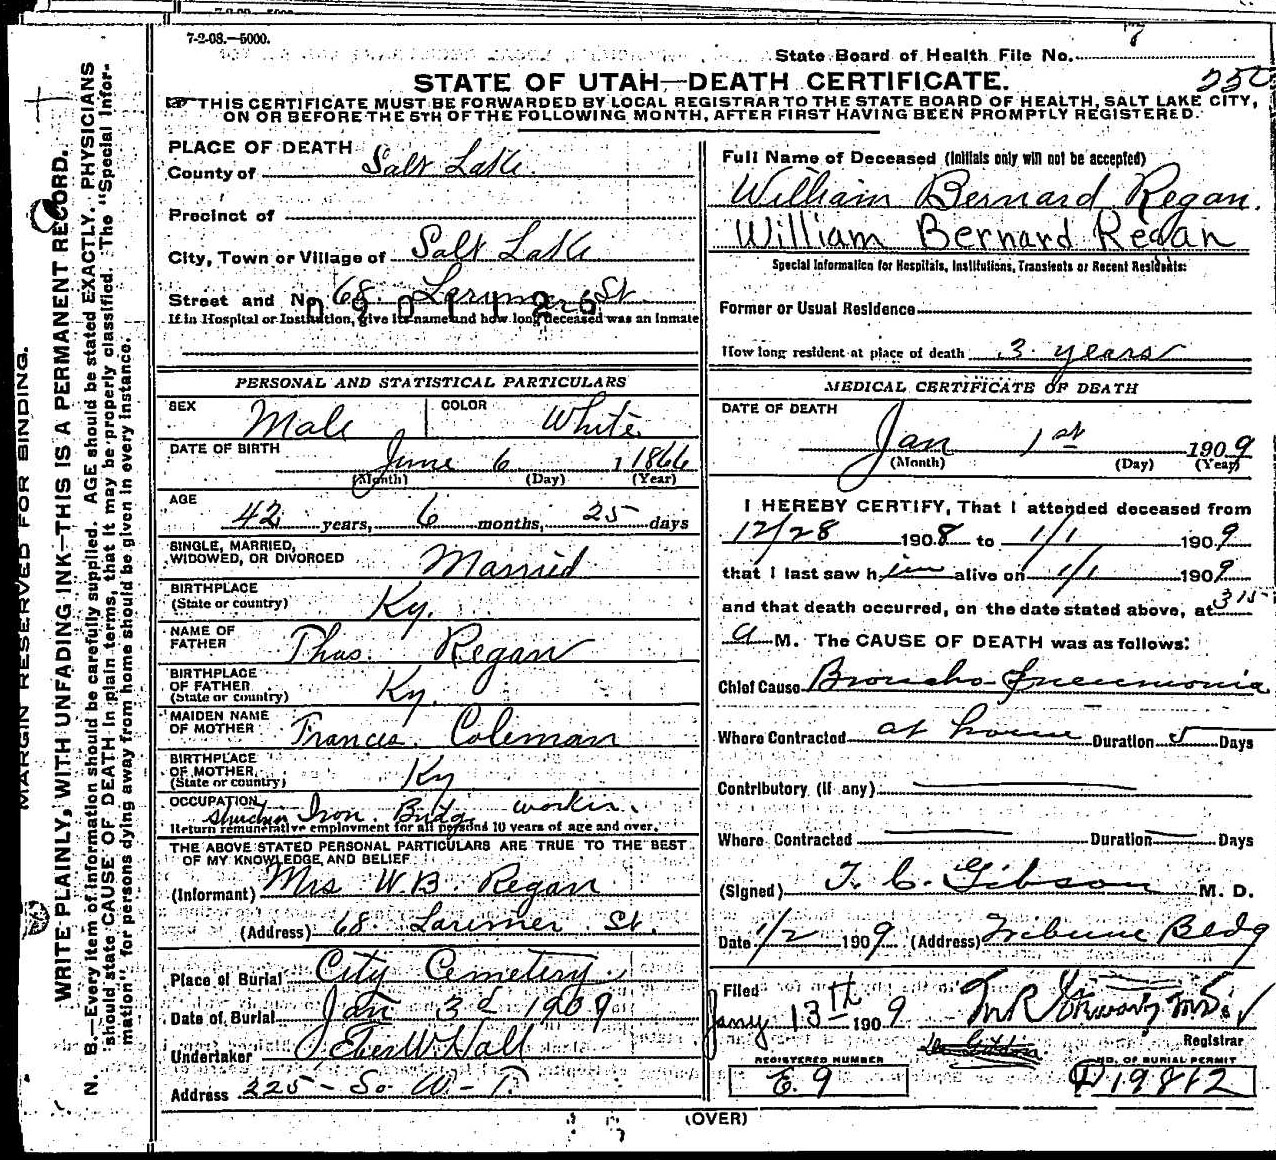 7-2-08.—5000.
State Board of Health File No. 7
STATE OF UTAH—DEATH CERTIFICATE.
THIS CERTIFICATE MUST BE FORWARDED BY LOCAL REGISTRAR TO THE STATE BOARD OF HEALTH, SALT LAKE CITY,
ON OR BEFORE THE 5TH OF THE FOLLOWING MONTH, AFTER FIRST HAVING BEEN PROMPTLY REGISTERED.
MARGIN RESERVED FOR BINDING.
WRITE PLAINLY, WITH UNFADING INK—THIS IS A PERMANENT RECORD.
N. B.—Every item of information should be carefully supplied. AGE should be stated EXACTLY. PHYSICIANS
should state CAUSE OF DEATH in plain terms, that it may be properly classified. The "Special Infor-
mation" for persons dying away from home should be given in every instance.
PLACE OF DEATH
County of Salt Lake
Precinct of
City, Town or Village of Salt Lake
Street and No. 68 Larimer St.
If in Hospital or Institution, give its name and how long deceased was an inmate
PERSONAL AND STATISTICAL PARTICULARS
SEX Male COLOR White
DATE OF BIRTH June 6, 1866
(Month) (Day) (Year)
AGE 42 years, 6 months, 25 days
SINGLE, MARRIED,
WIDOWED, OR DIVORCED Married
BIRTHPLACE
(State or country) Ky.
NAME OF
FATHER Thos. Regan
BIRTHPLACE
OF FATHER
(State or country) Ky.
MAIDEN NAME
OF MOTHER Frances Coleman
BIRTHPLACE
OF MOTHER
(State or country) Ky
OCCUPATION Iron Bridg worker.
Return remunerative employment for all persons 10 years of age and over.
THE ABOVE STATED PERSONAL PARTICULARS ARE TRUE TO THE BEST
OF MY KNOWLEDGE AND BELIEF
(Informant) Mrs W. B. Regan
(Address) 68 Larimer St.
Place of Burial City Cemetery.
Date of Burial Jan 3d 1909
Undertaker Eber W Hall
Address 225 - So W - T.
Full Name of Deceased (Initials only will not be accepted)
William Bernard Regan.
William Bernard Regan
Special Information for Hospitals, Institutions, Transients or Recent Residents:
Former or Usual Residence
How long resident at place of death 3 years
MEDICAL CERTIFICATE OF DEATH
DATE OF DEATH
Jan 1st 1909
(Month) (Day) (Year)
I HEREBY CERTIFY, That I attended deceased from
12/28 1908 to 1/1 1909
that I last saw him alive on 1/1 1909
and that death occurred, on the date stated above, at 3 15
a M. The CAUSE OF DEATH was as follows:
Chief Cause Broncho-Pneumonia
Where Contracted at home Duration 5 Days
Contributory (if any)
Where Contracted Duration Days
(Signed) T. C. Gibson M. D.
Date 1/2 1909 (Address) Tribune Bldg
Filed
Jany 13th 1909
Registrar
REGISTERED NUMBER
E. 9
NO. OF BURIAL PERMIT
19812
(OVER)